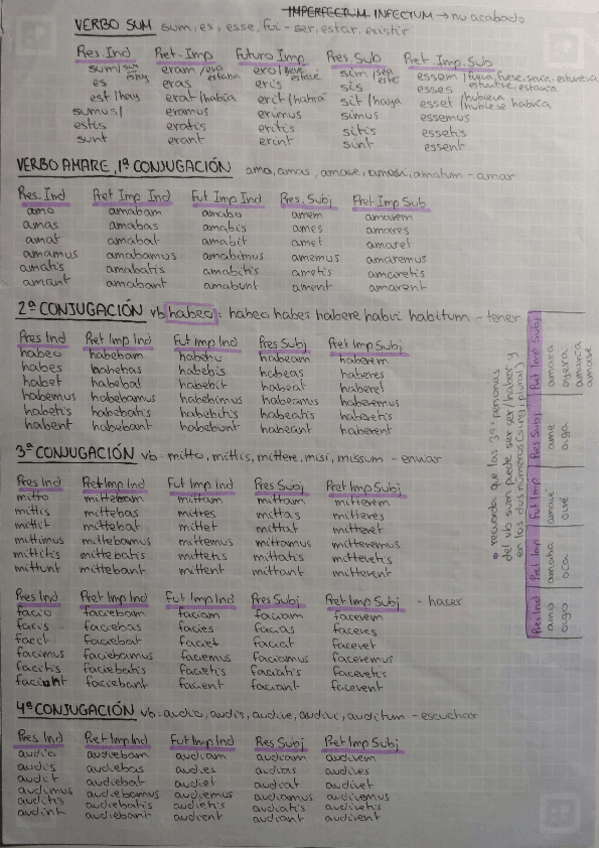 IMPERFECTUM INFECTUM → no acabado
VERBO SUM sum, es, esse, fui - ser, estar, existir
Pres. Ind Pret. Imp Futuro Imp Pres. Sub Pret. Imp. Sub
sum/ soy estoy eram/ era estaba ero/ seré estaré sim/ sea esté essem
es eras eris sis esses
est/hay erat/había erit/habrá sit/haya esset/ hubiera hubiese habría
sumus/ eramus erimus simus essemus
estis eratis eritis sitis essetis
sunt erant erint sint essent
VERBO AMARE, 1ª CONJUGACIÓN amo, amas, amare, amavi, amatum - amar
Pres. Ind Pret Imp Ind Fut Imp Ind Pres. Subj Pret Imp Sub
amo amabam amabo amem amarem
amas amabas amabis ames amares
amat amabat amabit amet amaret
amamus amabamus abimus amemus amaremus
amatis amabatis amabitis ametis amaretis
amant amabant amabunt ament amarent
2ª CONJUGACIÓN vb habeo: habeo habes habere habui habitum - tener
Pres Ind Pret Imp Ind Fut Imp Ind Pres Subj Pret Imp Subj
habeo habebam habebo habeam haberem
habes habebas habebis habeas haberes
habet habebat habebit habeat haberet
habemus habebamus habebimus habeamus haberemus
habetis habebatis habebitis habeatis haberetis
habent habebant habebunt habeant haberent
3ª CONJUGACIÓN vb: mitto, mittis, mittere, misi, missum - enviar
Pres Ind Pret Imp Ind Fut Imp Ind Pres Subj Pret Imp Subj
mitto mittebam mittam mittam mitterem
mittis mittebas mittes mittas mitteres
mittit mittebat mittet mittat mitteret
mittimus mittebamus mittemus mittamus mitteremus
mittitis mittebatis mittetis mittatis mitteretis
mittunt mittebant mittent mittant mitterent
Pres Ind Pret Imp Ind Fut Imp Ind Pres Subj Pret Imp Subj - hacer
facio faciebam faciam faciam facerem
facis faciebas facies facias faceres
facit faciebat faciet faciat faceret
facimus faciebamus faciemus faciamus faceremus
facitis faciebatis facietis faciatis faceretis
faciunt faciebant facient faciant facerent
4ª CONJUGACIÓN vb: audio, audis, audire, audivi, auditum - escuchar
Pres Ind Pret Imp Ind Fut Imp Ind Pres Subj Pret Imp Subj
audio audiebam audiam audiam audirem
audis audiebas audies audias audires
audit audiebat audiet audiat audiret
audimus audiebamus audiemus audiamus audiremus
auditis audiebatis audietis audiatis audiretis
audiunt audiebant audient audiant audirent
• recuerda que las 3ª personas
del vb sum puede ser ser/haber y
en los dos números (sing/plural)
Pres Ind Pret Imp Fut Imp Pres Subj Pret Imp Subj
amo amaba amaré ame amara
oigo oía oiré oiga oyera
amaría
amase